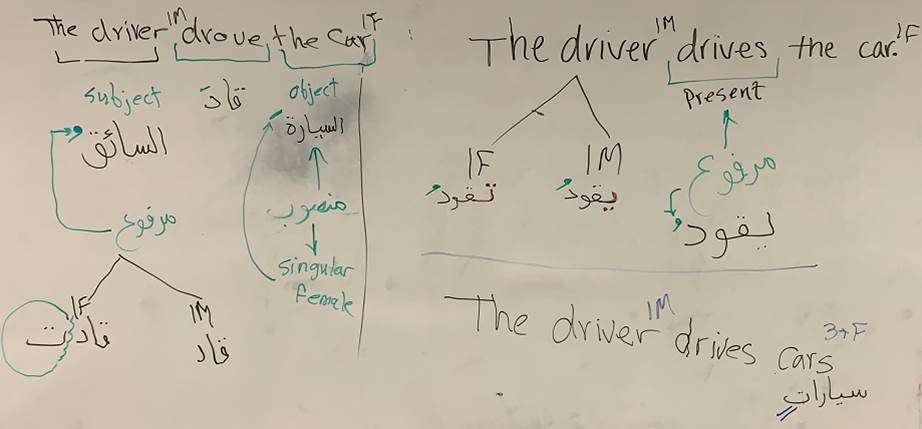 The driver 1M drove the Car 1F
subject قادَ object
السائقُ السيارةَ
مرفوع منصوب
singular
female
1F 1M
قادت قاد
The driver 1M drives the car. 1F
present
1F 1M
تقودُ يقودُ
مرفوع
يقودُ
The driver 1M drives cars 3+F
سياراتٍ